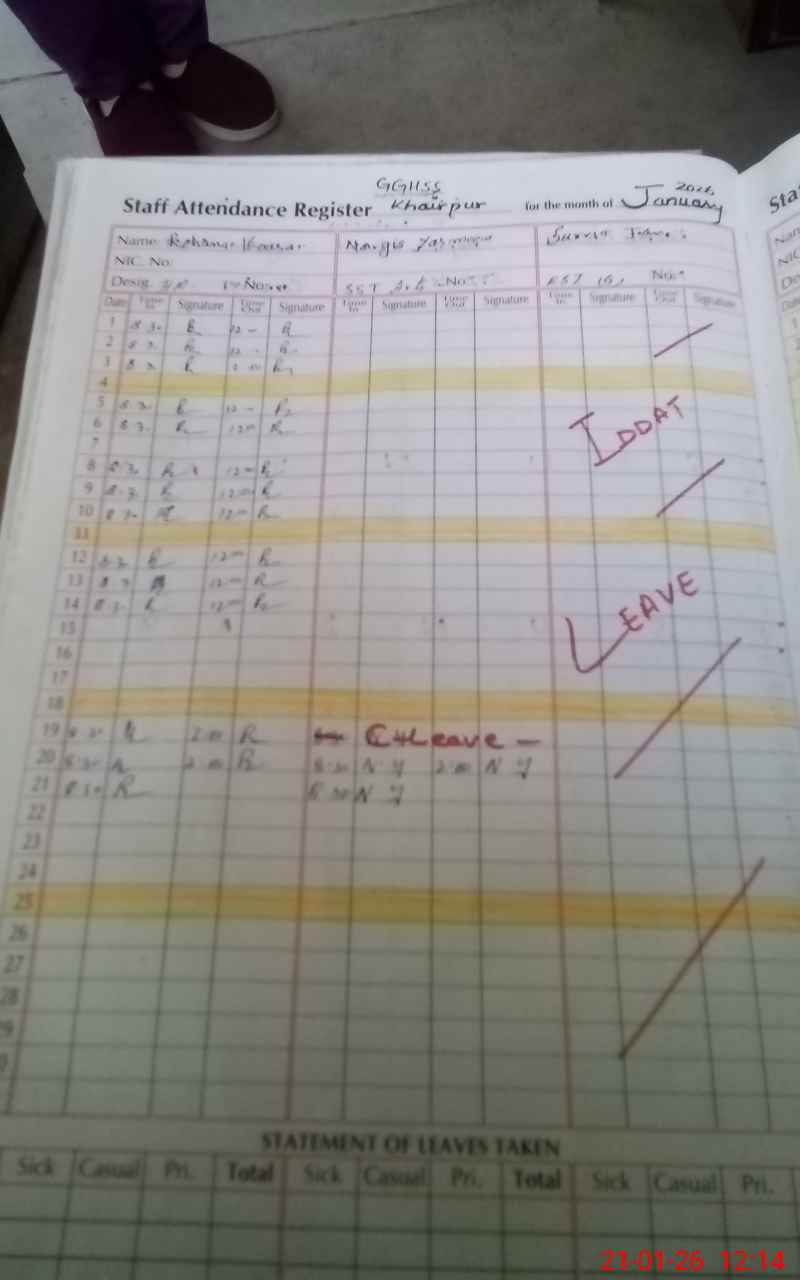 GGHSS 2026
Staff Attendance Register Khairpur for the month of January
Name
NIC. No.
Desig. No.
SST No.
EST No.
Date Time In Signature Time Out Signature Time In Signature Time Out Signature Time In Signature Time Out Signature
1 8 3. R 12 - R
2 8 3. R 12 - R
3 8 3. R R
4
5 8 3. R 12 - R
6 8 3. R 12 00 R
7
IDDAT
8 8 3. R 12 00 R
9 8 3. R 12 00 R
10 8 3. R 12 00 R
11
12 8 3. R 12 00 R
13 8 3. R 12 00 R
14 8 3. R 12 00 R
15
LEAVE
16
17
18
19 8 30 R 2 00 R Leave -
20 8 30 R 2 00 R 8 30 N Y 2 00 N Y
21 8 30 R 8 30 N Y
22
23
24
25
26
27
28
STATEMENT OF LEAVES TAKEN
Sick Casual Pri. Total Sick Casual Pri. Total Sick Casual Pri.
21-01-26 12:14